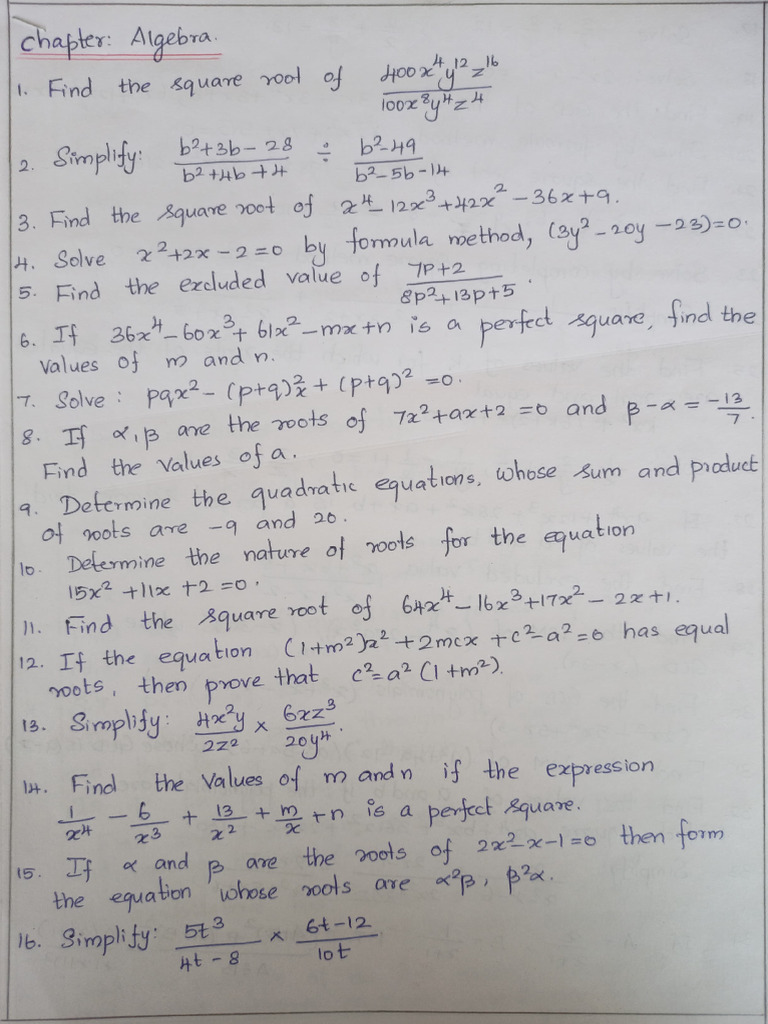 Chapter: Algebra.
1. Find the square root of 400x⁴y¹²z¹⁶ / 100x⁸y⁴z⁴
2. Simplify: b²+3b-28 / b²+4b+4 ÷ b²-49 / b²-5b-14
3. Find the square root of x⁴-12x³+42x²-36x+9.
4. Solve x²+2x-2=0 by formula method, (3y²-20y-23)=0.
5. Find the excluded value of 7p+2 / 8p²+13p+5.
6. If 36x⁴-60x³+61x²-mx+n is a perfect square, find the
values of m and n.
7. Solve: pqx²-(p+q)²x+(p+q)²=0.
8. If α,β are the roots of 7x²+ax+2=0 and β-α=-13/7.
Find the values of a.
9. Determine the quadratic equations, whose sum and product
of roots are -9 and 20.
10. Determine the nature of roots for the equation
15x²+11x+2=0.
11. Find the square root of 64x⁴-16x³+17x²-2x+1.
12. If the equation (1+m²)x²+2mcx+c²-a²=0 has equal
roots, then prove that c²=a²(1+m²).
13. Simplify: 4x²y / 2z² × 6xz³ / 20y⁴.
14. Find the values of m and n if the expression
1/x⁴ - 6/x³ + 13/x² + m/x + n is a perfect square.
15. If α and β are the roots of 2x²-x-1=0 then form
the equation whose roots are α²β, β²α.
16. Simplify: 5t³ / 4t-8 × 6t-12 / 10t